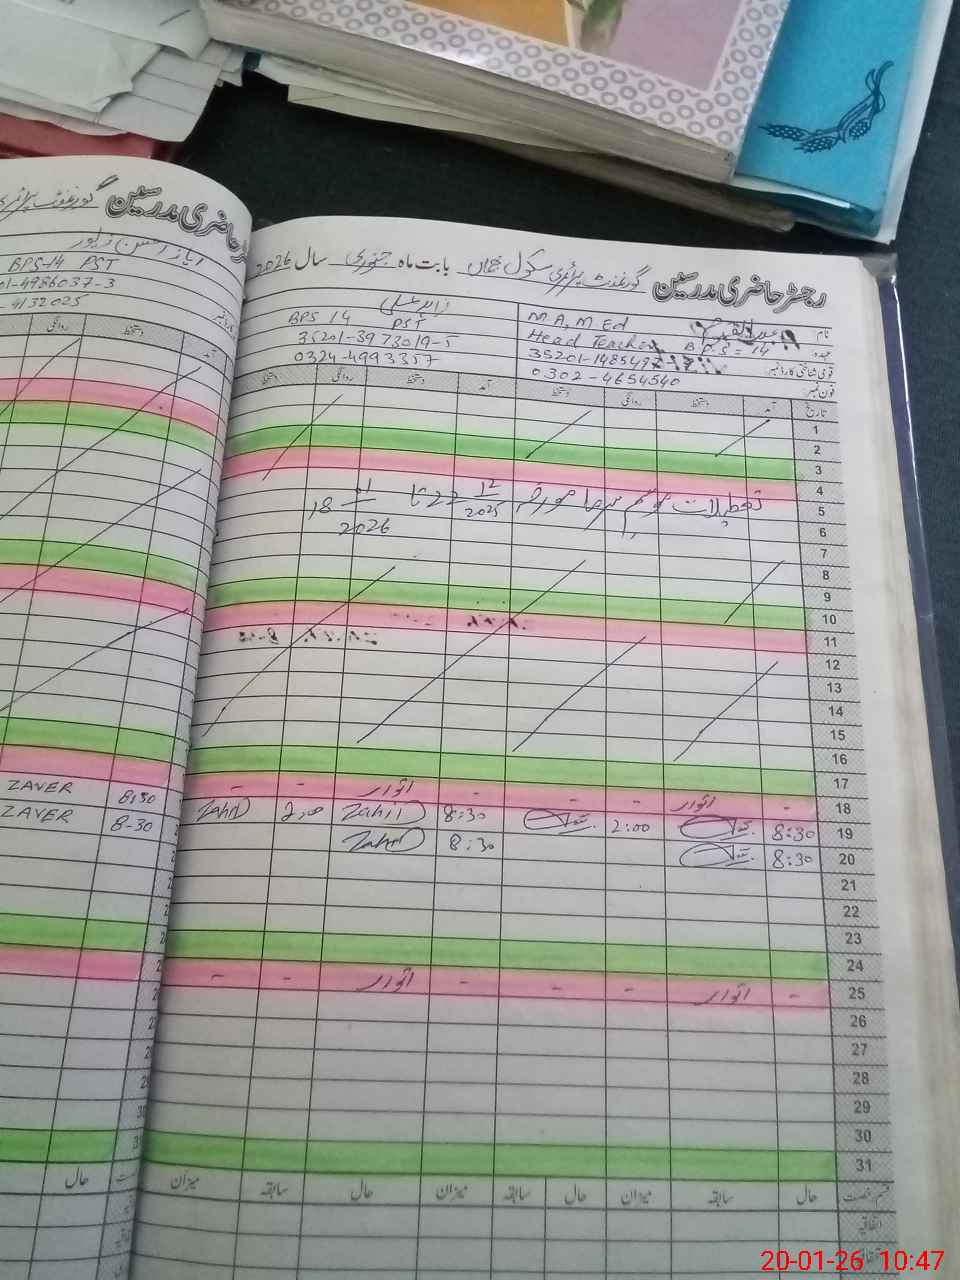 رجسٹر حاضری مدرسین گورنمنٹ پرائمری سکول بابت ماہ جنوری سال 2026
نام
M A, M Ed
عہدہ Head Teacher B.P.S = 14
قومی شناختی کارڈ نمبر
فون نمبر 0302-4654540
BPS 14 PST
35201-3973019-5
0324-4993357
تاریخ آمد دستخط روانگی دستخط آمد دستخط روانگی دستخط
1
2
3
4
تعطیلات موسم سرما مورخہ 22 12/2025 تا 18 01/2026
5
6
7
8
9
10
11
12
13
14
15
16
17
18 - اتوار - - - اتوار - -
19 8:30 2:00 8:30 Zahid 2:00 Zahid
20 8:30 8:30 Zahid
21
22
23
24
25 - اتوار - - - اتوار - -
26
27
28
29
30
31
قسم رخصت حال سابقہ میزان حال سابقہ میزان حال سابقہ میزان
اتفاقیہ
حاضری مدرسین گورنمنٹ
BPS-14 PST
01-4986037-3
-4132025
آمد دستخط روانگی
8:30 ZAVER
8-30 ZAVER
حال
20-01-26 10:47